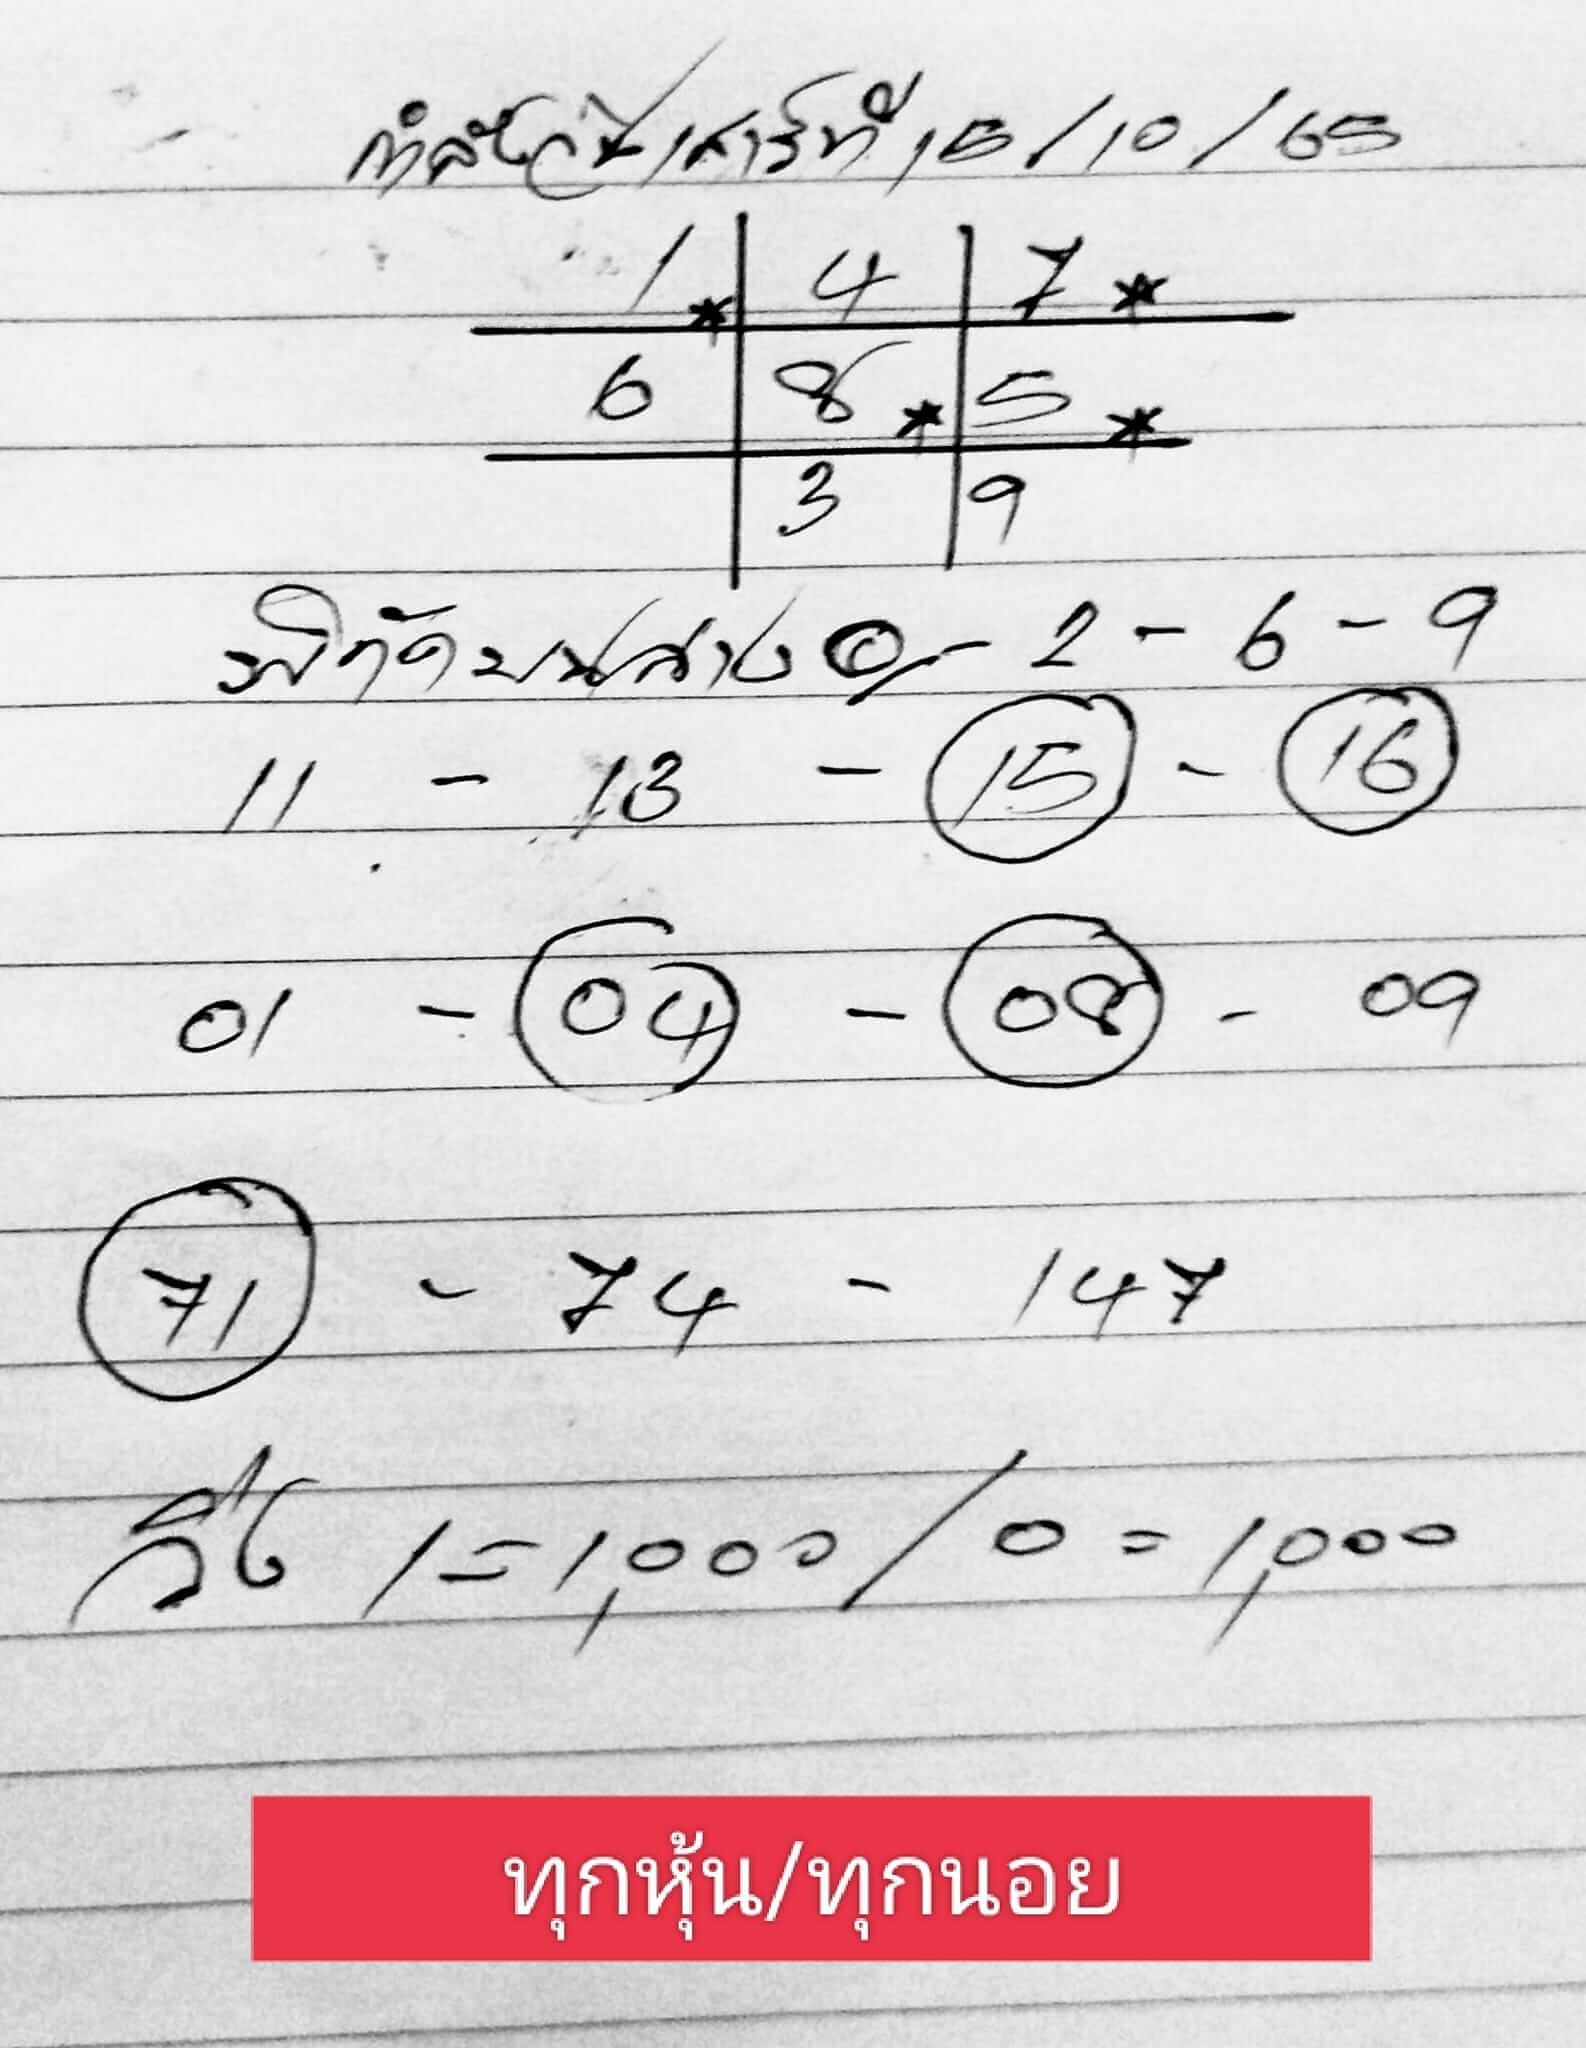 กำลังวันเสาร์ที่ 15/10/65
1 * 4 7 *
6 8 * 5 *
3 9
พิกัดบนล่าง 0 - 2 - 6 - 9
11 - 13 - 15 - 16
01 - 04 - 08 - 09
71 - 74 - 147
วิ่ง 1 = 1,000 / 0 = 1,000
ทุกหุ้น/ทุกนอย